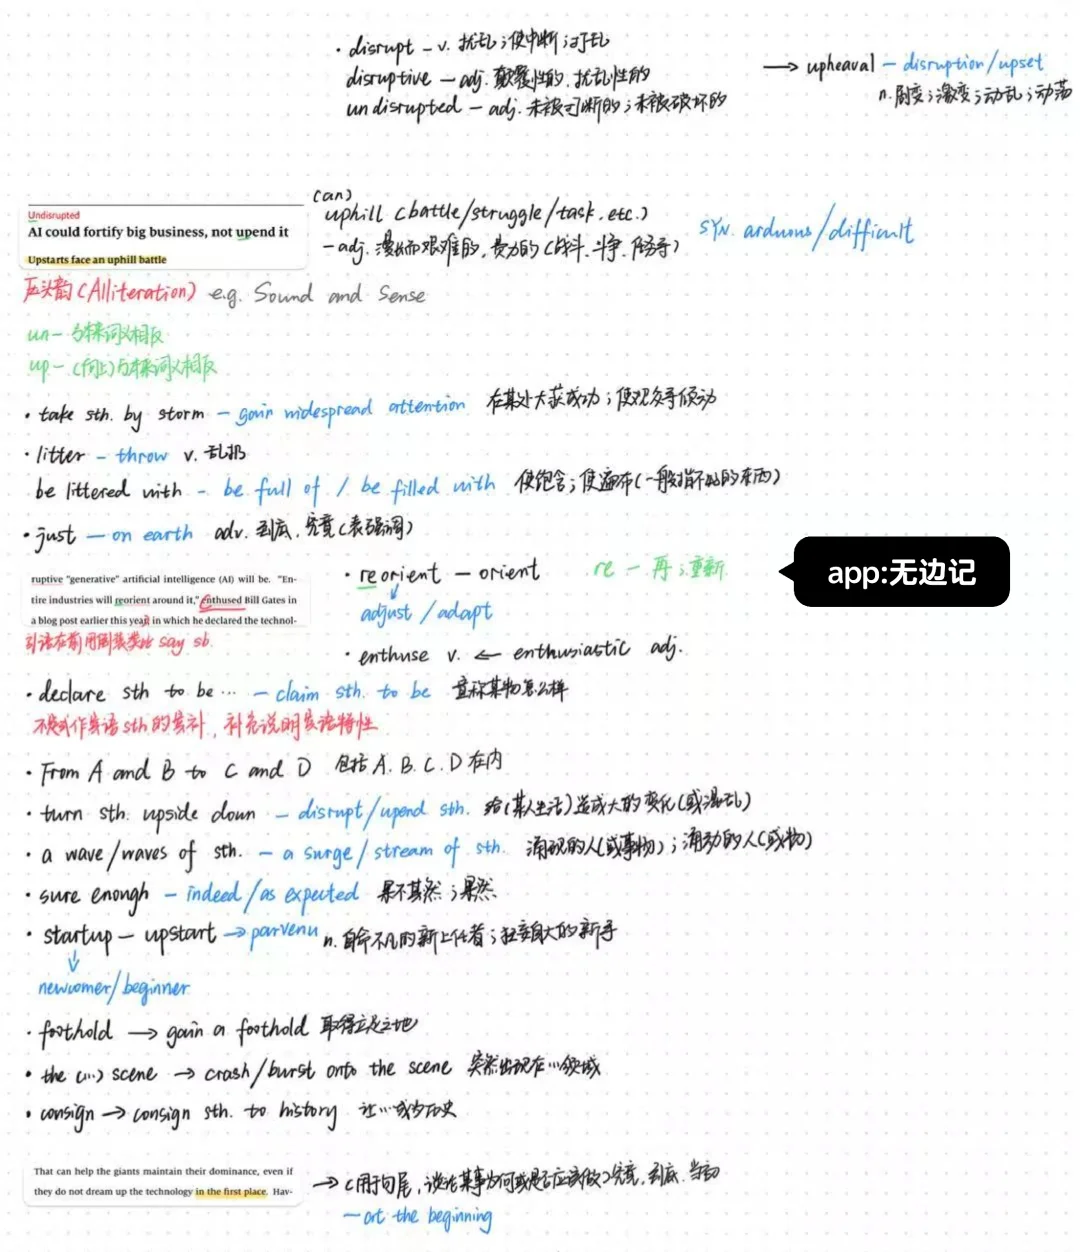 · disrupt – v. 扰乱；使中断；打乱
disruptive – adj. 颠覆性的, 扰乱性的
undisrupted – adj. 未被中断的；未被破坏的
→ upheaval – disruption/upset
n. 剧变；激变；动乱；动荡
Undisrupted
AI could fortify big business, not upend it
Upstarts face an uphill battle
(an)
uphill (battle/struggle/task. etc.)
– adj. 漫长而艰难的, 费力的 (战斗、斗争、任务等)
SYN. arduous/difficult
压头韵 (Alliteration) e.g. Sound and Sense
un– 与本来词义相反
up– (向上) 与本来词义相反
· take sth. by storm – gain widespread attention 在某处大获成功；使观众等倾动
· litter – throw v. 乱扔
be littered with – be full of / be filled with 使饱含；使遍布 (一般指不好的东西)
· just – on earth adv. 到底, 究竟 (表强调)
ruptive “generative” artificial intelligence (AI) will be. “En-
tire industries will reorient around it,” enthused Bill Gates in
a blog post earlier this year in which he declared the technol-
引语在前用倒装类比 say sb.
· reorient – orient
re – 再；重新
adjust / adapt
· enthuse v. ← enthusiastic adj.
app:无边记
· declare sth to be … – claim sth. to be 宣称某物怎么样
不定式作宾语 sth 的宾补, 补充说明宾语特性
· From A and B to C and D 包括 A. B. C. D 在内
· turn sth. upside down – disrupt/upend sth. 给 (某人生活) 造成大的变化 (或混乱)
· a wave/waves of sth. – a surge/stream of sth. 涌现的人 (或事物)；涌动的人 (或物)
· sure enough – indeed/as expected 果不其然；果然
· startup – upstart → parvenu n. 自命不凡的新上任者；狂妄自大的新手
newcomer/beginner
· foothold → gain a foothold 取得立足之地
· the (…) scene → crash/burst onto the scene 突然出现在…领域
· consign → consign sth. to history 让…成为历史
That can help the giants maintain their dominance, even if
they do not dream up the technology in the first place. Hav-
→ (用于句尾, 谈论某事为何或是否应该做) 究竟, 到底, 当初
– at the beginning